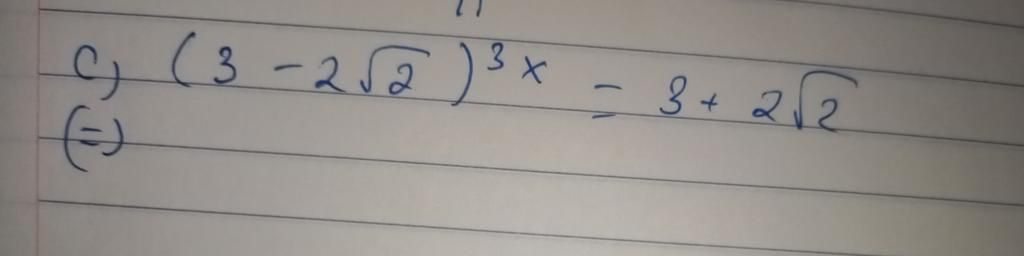 c, (3 - 2√2)³ˣ = 3 + 2√2
(=)